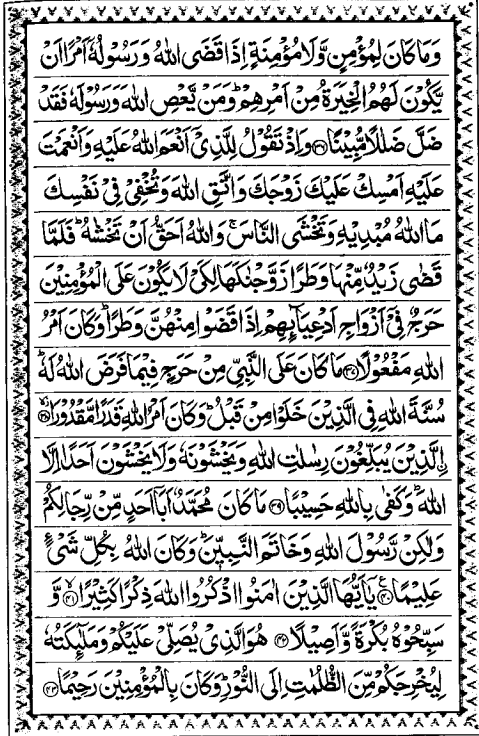 وَمَا كَانَ لِمُؤْمِنٍ وَّلَا مُؤْمِنَةٍ اِذَا قَضَى اللّٰهُ وَرَسُوْلُهٗٓ اَمْرًا اَنْ
يَّكُوْنَ لَهُمُ الْخِيَرَةُ مِنْ اَمْرِهِمْ ؕ وَمَنْ يَّعْصِ اللّٰهَ وَرَسُوْلَهٗ فَقَدْ
ضَلَّ ضَلٰلًا مُّبِيْنًا ﴿۳۶﴾ وَاِذْ تَقُوْلُ لِلَّذِيْٓ اَنْعَمَ اللّٰهُ عَلَيْهِ وَاَنْعَمْتَ
عَلَيْهِ اَمْسِكْ عَلَيْكَ زَوْجَكَ وَاتَّقِ اللّٰهَ وَتُخْفِيْ فِيْ نَفْسِكَ
مَا اللّٰهُ مُبْدِيْهِ وَتَخْشَى النَّاسَ ۚ وَاللّٰهُ اَحَقُّ اَنْ تَخْشٰىهُ ؕ فَلَمَّا
قَضٰى زَيْدٌ مِّنْهَا وَطَرًا زَوَّجْنٰكَهَا لِكَيْ لَا يَكُوْنَ عَلَى الْمُؤْمِنِيْنَ
حَرَجٌ فِيْٓ اَزْوَاجِ اَدْعِيَآئِهِمْ اِذَا قَضَوْا مِنْهُنَّ وَطَرًا ؕ وَكَانَ اَمْرُ
اللّٰهِ مَفْعُوْلًا ﴿۳۷﴾ مَا كَانَ عَلَى النَّبِيِّ مِنْ حَرَجٍ فِيْمَا فَرَضَ اللّٰهُ لَهٗ ؕ
سُنَّةَ اللّٰهِ فِي الَّذِيْنَ خَلَوْا مِنْ قَبْلُ ؕ وَكَانَ اَمْرُ اللّٰهِ قَدَرًا مَّقْدُوْرًا ﴿۳۸﴾ ۙ
الَّذِيْنَ يُبَلِّغُوْنَ رِسٰلٰتِ اللّٰهِ وَيَخْشَوْنَهٗ وَلَا يَخْشَوْنَ اَحَدًا اِلَّا
اللّٰهَ ؕ وَكَفٰى بِاللّٰهِ حَسِيْبًا ﴿۳۹﴾ مَا كَانَ مُحَمَّدٌ اَبَآ اَحَدٍ مِّنْ رِّجَالِكُمْ
وَلٰكِنْ رَّسُوْلَ اللّٰهِ وَخَاتَمَ النَّبِيّٖنَ ؕ وَكَانَ اللّٰهُ بِكُلِّ شَيْءٍ
عَلِيْمًا ﴿۴۰﴾ ۧ يٰٓاَيُّهَا الَّذِيْنَ اٰمَنُوا اذْكُرُوا اللّٰهَ ذِكْرًا كَثِيْرًا ﴿۴۱﴾ ۙ وَّ
سَبِّحُوْهُ بُكْرَةً وَّاَصِيْلًا ﴿۴۲﴾ هُوَ الَّذِيْ يُصَلِّيْ عَلَيْكُمْ وَمَلٰٓئِكَتُهٗ
لِيُخْرِجَكُمْ مِّنَ الظُّلُمٰتِ اِلَى النُّوْرِ ؕ وَكَانَ بِالْمُؤْمِنِيْنَ رَحِيْمًا ﴿۴۳﴾